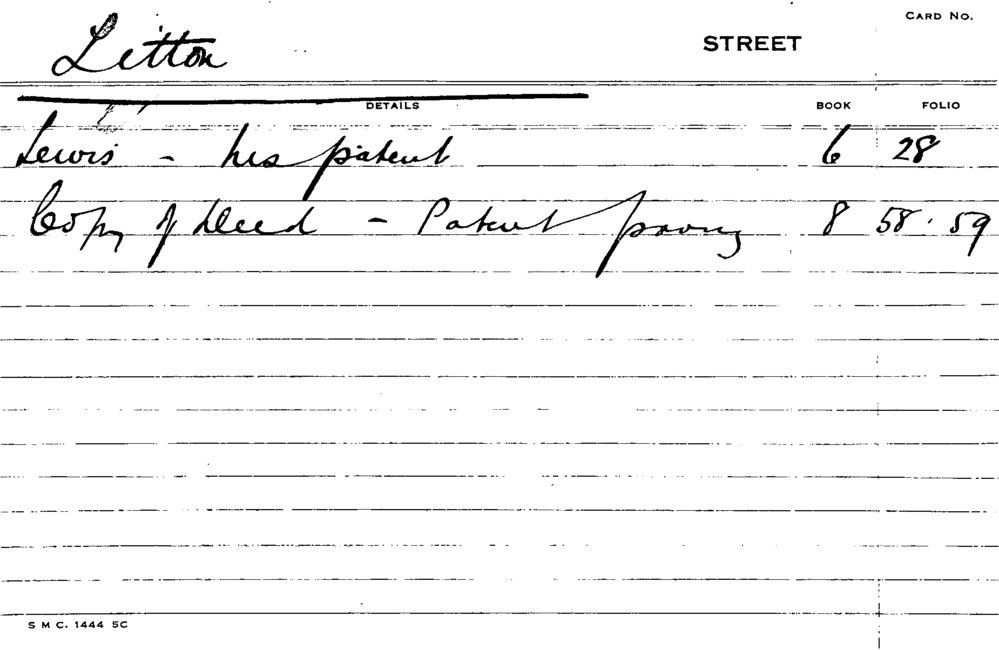 CARD No.
Litton STREET
DETAILS BOOK FOLIO
Lewis - his patent 6 28
Copy of Deed - Patent paving 8 58 . 59
S M C. 1444 5C